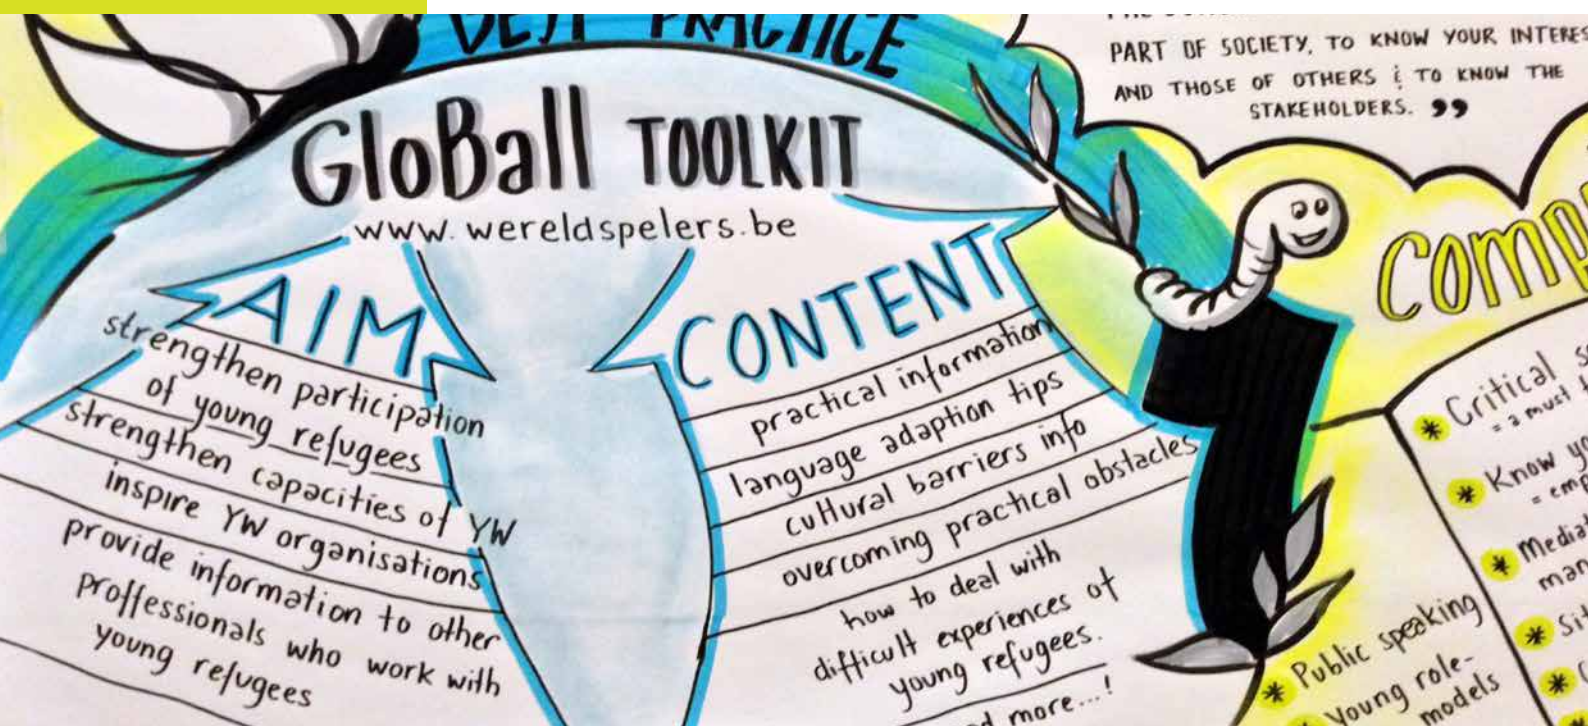 BEST PRACTICE
GloBall TOOLKIT
www.wereldspelers.be
AIM
strengthen participation
of young refugees
strengthen capacities of YW
inspire YW organisations
provide information to other
proffessionals who work with
young refugees
CONTENT
practical information
language adaption tips
cultural barriers info
overcoming practical obstacles
how to deal with
difficult experiences of
young refugees.
more...!
PART OF SOCIETY, TO KNOW YOUR
AND THOSE OF OTHERS & TO KNOW THE
STAKEHOLDERS. ”
* Critical
= a must
* Know
*
*
*
* Public speaking
Young role-
models